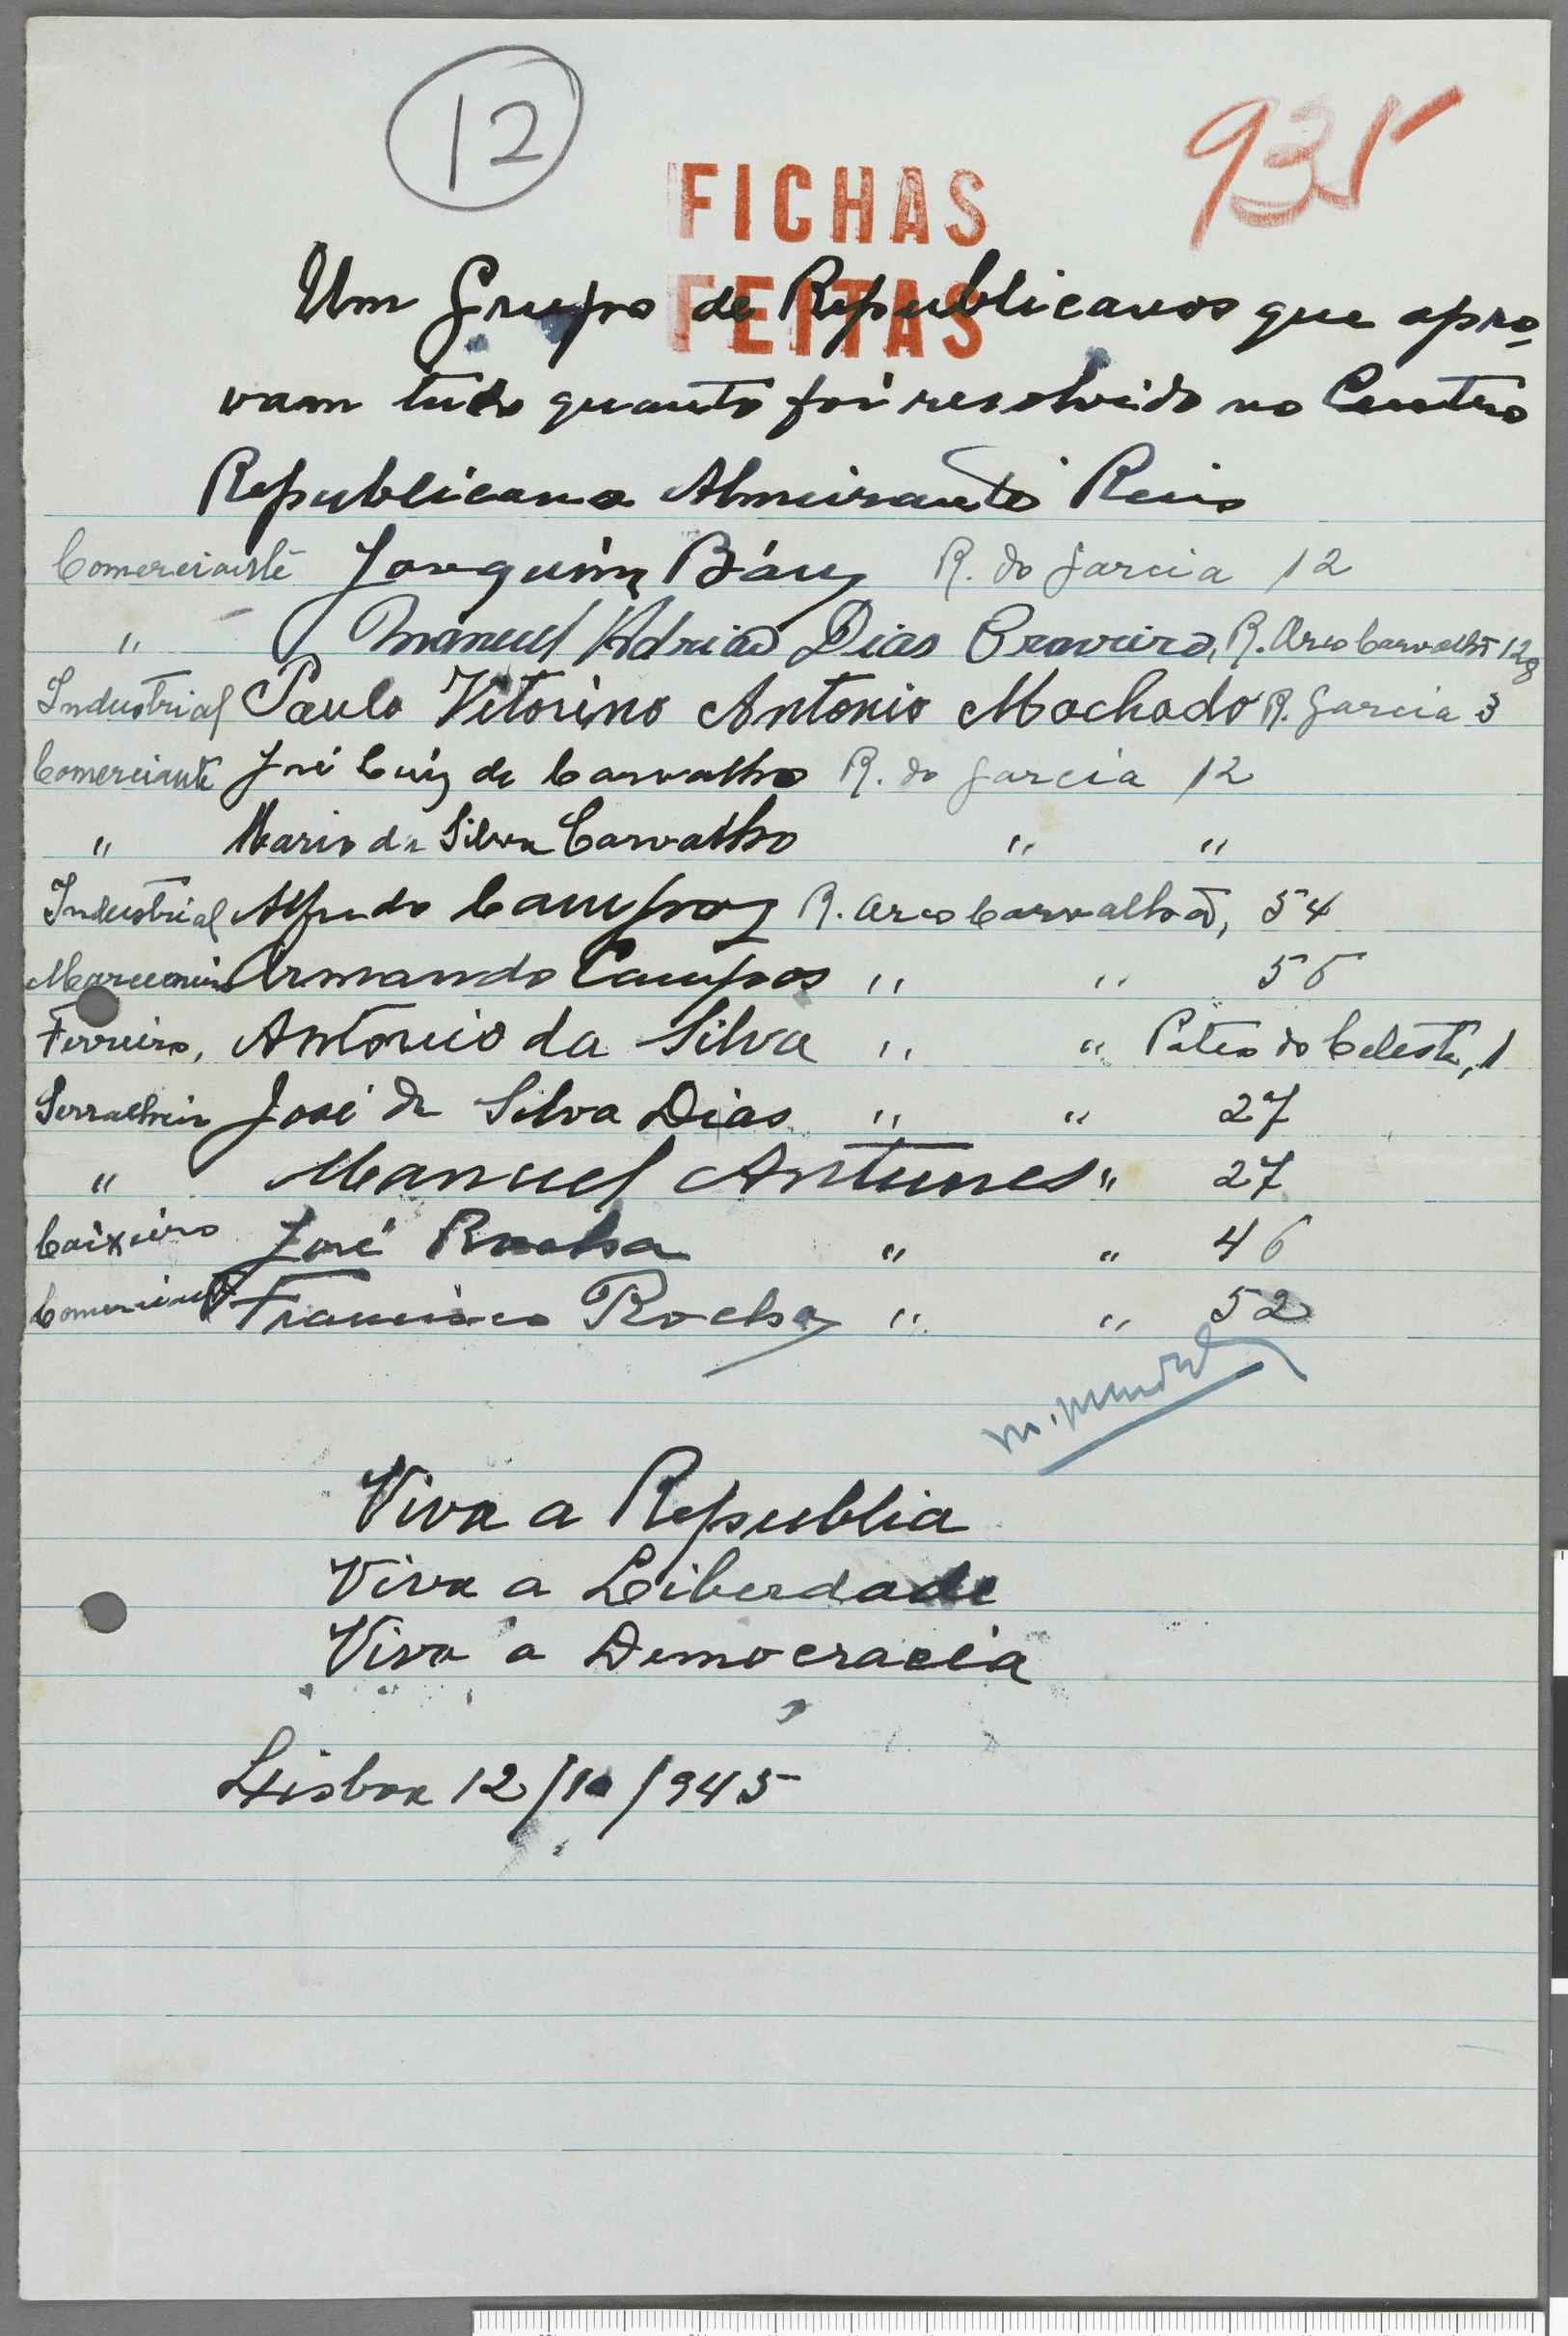 12
935
FICHAS
FEITAS
Um Grupo de Republicanos que apro-
vam tudo quanto foi resolvido no Centro
Republicano Almirante Reis
Comerciante Joaquim R. do Garcia 12
" Manuel Adrião Dias R. Arco Carvalhão 128
Industrial Paulo Vitorino Antonio Machado R. Garcia 3
Comerciante José Luiz de Carvalho R. do Garcia 12
" Mario da Silva Carvalho " "
Industrial Alfredo Campos R. Arco Carvalhão, 54
Armando Campos " " 56
Ferreiro, Antonio da Silva " " Pateo do Celeste, 1
Serralheiro José da Silva Dias " " 27
" Manuel Antunes " 27
Caixeiro José Rocha " " 46
Comerciante Francisco Rocha " " 52
Viva a Republia
Viva a Liberdade
Viva a Democracia
Lisboa 12/10/945